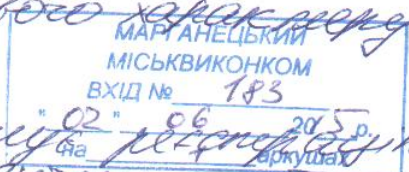 вого характеру
МАРГАНЕЦЬКИЙ
МІСЬКВИКОНКОМ
ВХІД № 183
"02" 06 2015 р.
на аркушах